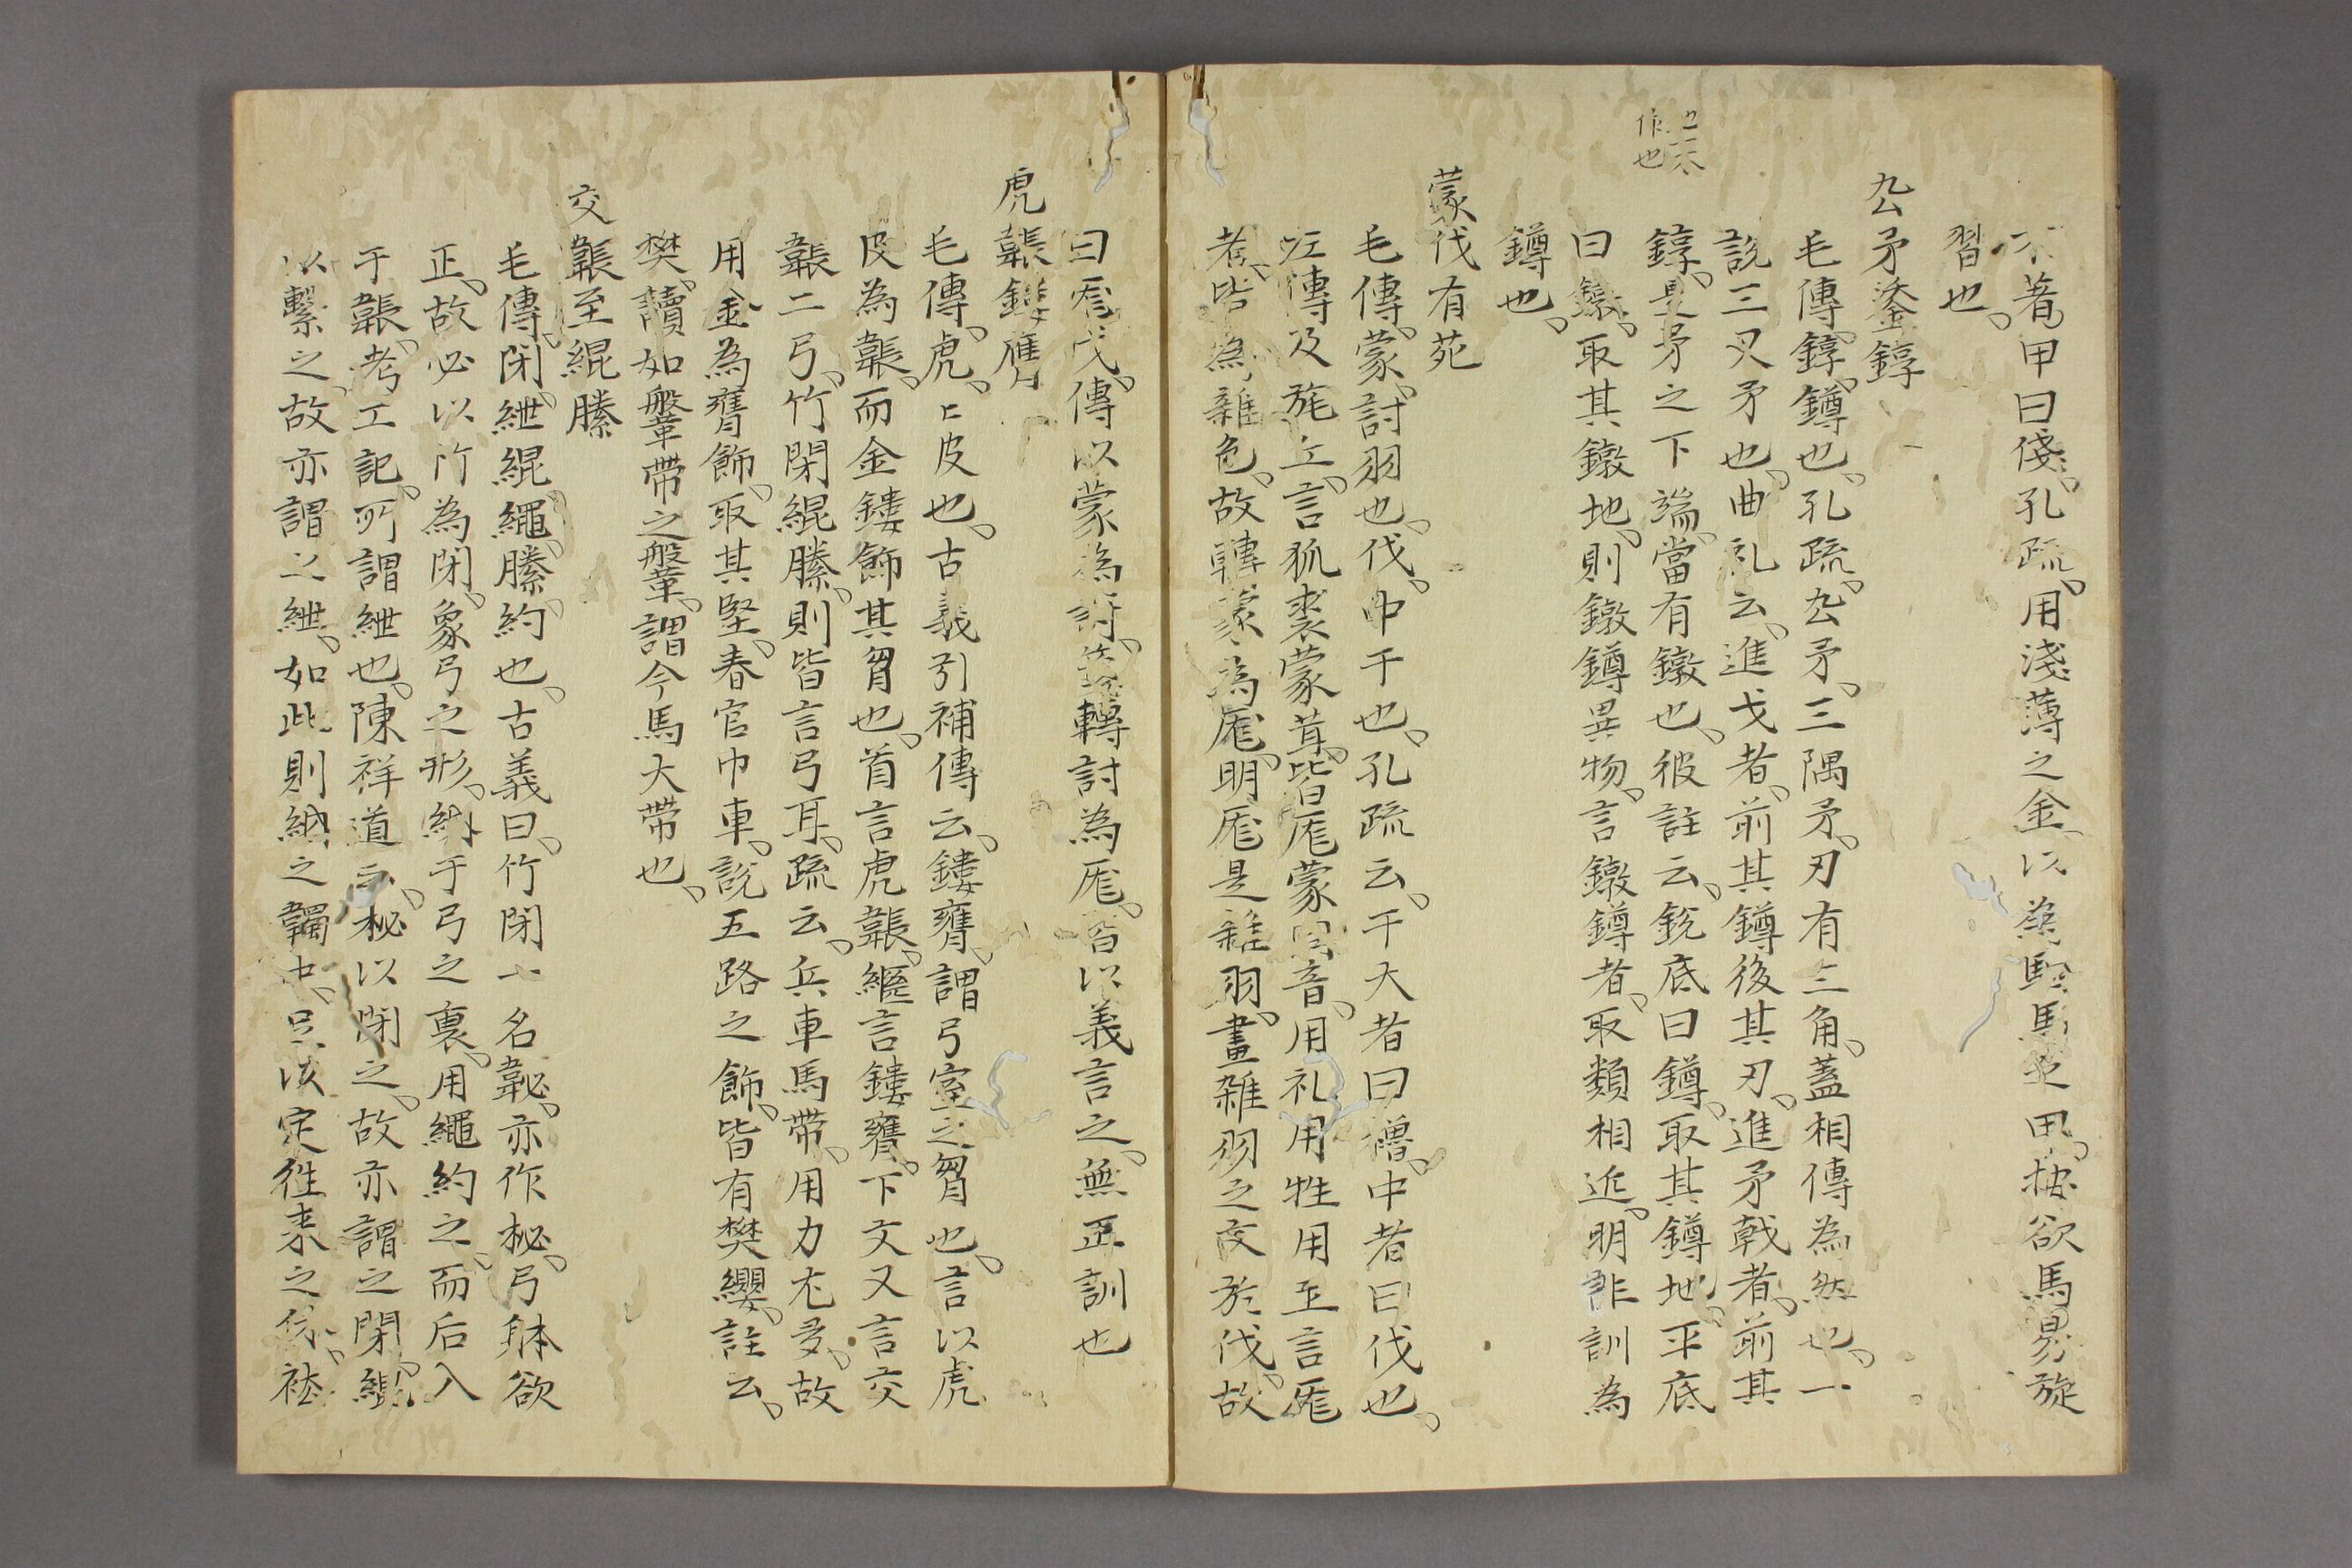 不著甲曰俴、孔疏、用淺薄之金、以為駟馬之甲、欲馬易旋
習也、
厹矛鋈錞
毛傳、錞、鐏也、孔疏、厹矛、三隅矛、刃有三角、蓋相傳為然也、一
說三叉矛也、曲礼云、進戈者、前其鐏後其刃、進矛戟者、前其
也一本
作也
錞、是矛之下端、當有鐓也、彼註云、銳底曰鐏、取其鐏地、平底
曰鐓、取其鐓地、則鐓鐏異物、言鐓鐏者、取類相近、明非訓為
鐏也、
蒙伐有苑
毛傳、蒙、討羽也、伐、中干也、孔疏云、干大者曰櫓、中者曰伐也、
左傳及旄丘、言狐裘蒙茸、皆厖蒙同音、用礼用牲用玉言厖
者、皆為雜色、故轉蒙為厖、明厖是雜羽、畫雜羽之文於伐、故
曰厖伐、傳以蒙為討、箋轉討為厖、皆以義言之、無正訓也
虎韔鏤膺
毛傳、虎、〻皮也、古義引補傳云、鏤膺、謂弓室之胷也、言以虎
皮為韔、而金鏤飾其胷也、首言虎韔、繼言鏤膺、下文又言交
韔二弓、竹閉緄縢、則皆言弓耳、疏云、兵車馬帶、用力尤多、故
用金為膺飾、取其堅、春官巾車、說五路之飾、皆有樊纓、註云、
樊、讀如鞶帶之鞶、謂今馬大帶也、
交韔至緄縢
毛傳、閉、紲緄、繩、縢、約也、古義曰、竹閉一名䪐、亦作柲、弓体欲
正、故必以竹為閉、象弓之形、納于弓之裏、用繩約之、而后入
于韔、考工記、所謂紲也、陳祥道云、柲以閉之、故亦謂之閉、紲
以繫之、故亦謂之紲、如此則納之韣中、定往来之体、